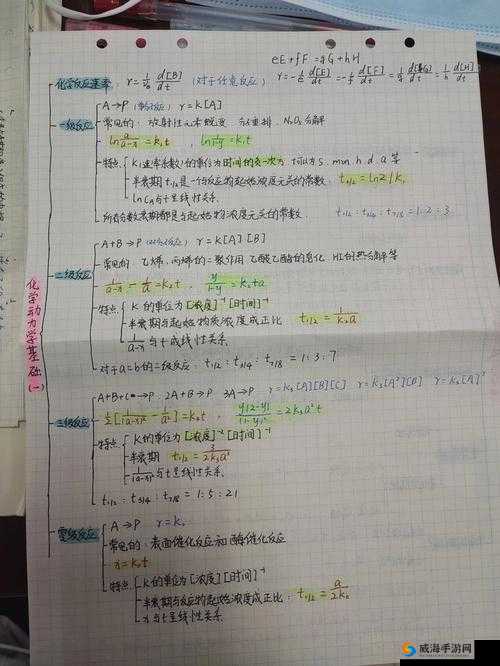 eE+fF=gG+hH
化学反应速率: r=1/νB d[B]/dt (对于任意反应) r=-1/e d[E]/dt=-1/f d[F]/dt=1/g d[G]/dt=1/h d[H]/dt
化学动力学基础(一)
一级反应
A→P r=k[A]
常见的: 放射性元素蜕变, 分子重排, N₂O₅分解
ln a/(a-x)=k₁t, ln 1/(1-y)=k₁t
特点
K(速率系数)的单位为时间的负一次方 可以为s, min, h, d, a等
半衰期t1/2是一个与反应物起始浓度无关的常数, t1/2=ln2/k₁
与t呈线性关系
所有分数衰期都是与起始物浓度无关的常数. t1/2:t3/4:t7/8=1:2:3
二级反应
A+B→P r=k[A][B]
常见的: 乙烯、丙烯的二聚作用 乙酸乙酯的皂化 HI的热分解等
1/(a-x)-1/a=k₂t y/(1-y)=k₂ta
特点
K的单位为[浓度]⁻¹[时间]⁻¹
半衰期与起始物质浓度成正比 t1/2=1/k₂a
1/(a-x)与t成线性关系.
对于a=b的二级反应: t1/2:t3/4:t7/8=1:3:7
三级反应
A+B+C→P 2A+B→P 3A→P r=k₃[A][B][C] r=k₃[A]²[B] r=k₃[A]³
1/2[1/(a-x)²-1/a²]=k₃t y(2-y)/(1-y)²=2k₃a²t
特点
K的单位为[浓度]⁻²[时间]⁻¹
半衰期 t1/2=3/2k₃a²
1/(a-x)²与t呈线性关系.
t1/2:t3/4:t7/8=1:5:21
零级反应
A→P r=k₀
常见的: 表面催化反应和酶催化反应
x=k₀t
特点
K的单位为[浓度][时间]⁻¹
半衰期与反应物起始浓度成正比: t1/2=a/2k₀
x与t呈线性关系
威海手游网